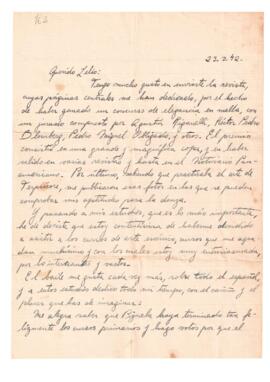 23.2.42.
Querido Lelio:
Tengo mucho gusto en enviarte la revista,
cuyas páginas centrales me han dedicado, por el hecho
de haber ganado un concurso de elegancia en malla, con
un jurado compuesto por Agustín Riganelli, Héctor Pedro
Blomberg, Pedro Miguel Obligado, y otros. El premio
consistió en una grande y magnífica copa, y en haber
salido en varias revistas y hasta en el Noticiario Pan-
americano. Por último, sabiendo que practicaba el arte de
Terpsícore, me publicaron esas fotos en las que se pueden
comprobar mis aptitudes para la danza.
Y pasando a mis estudios, que es lo más importante,
he de decirte que estoy contentísima de haberme decidido
a asistir a los cursos de este invierno, cursos que me agra-
dan muchísimo y con los cuales estoy muy entusiasmada,
por lo interesantes y vastos.
El baile me gusta cada vez más, sobre todo el español,
y a estos estudios dedico todo mi tiempo, con el cariño y el
placer que has de imaginar.
Me alegra saber que haya terminado tan fe-
lizmente los cursos primarios y hago votos por que el